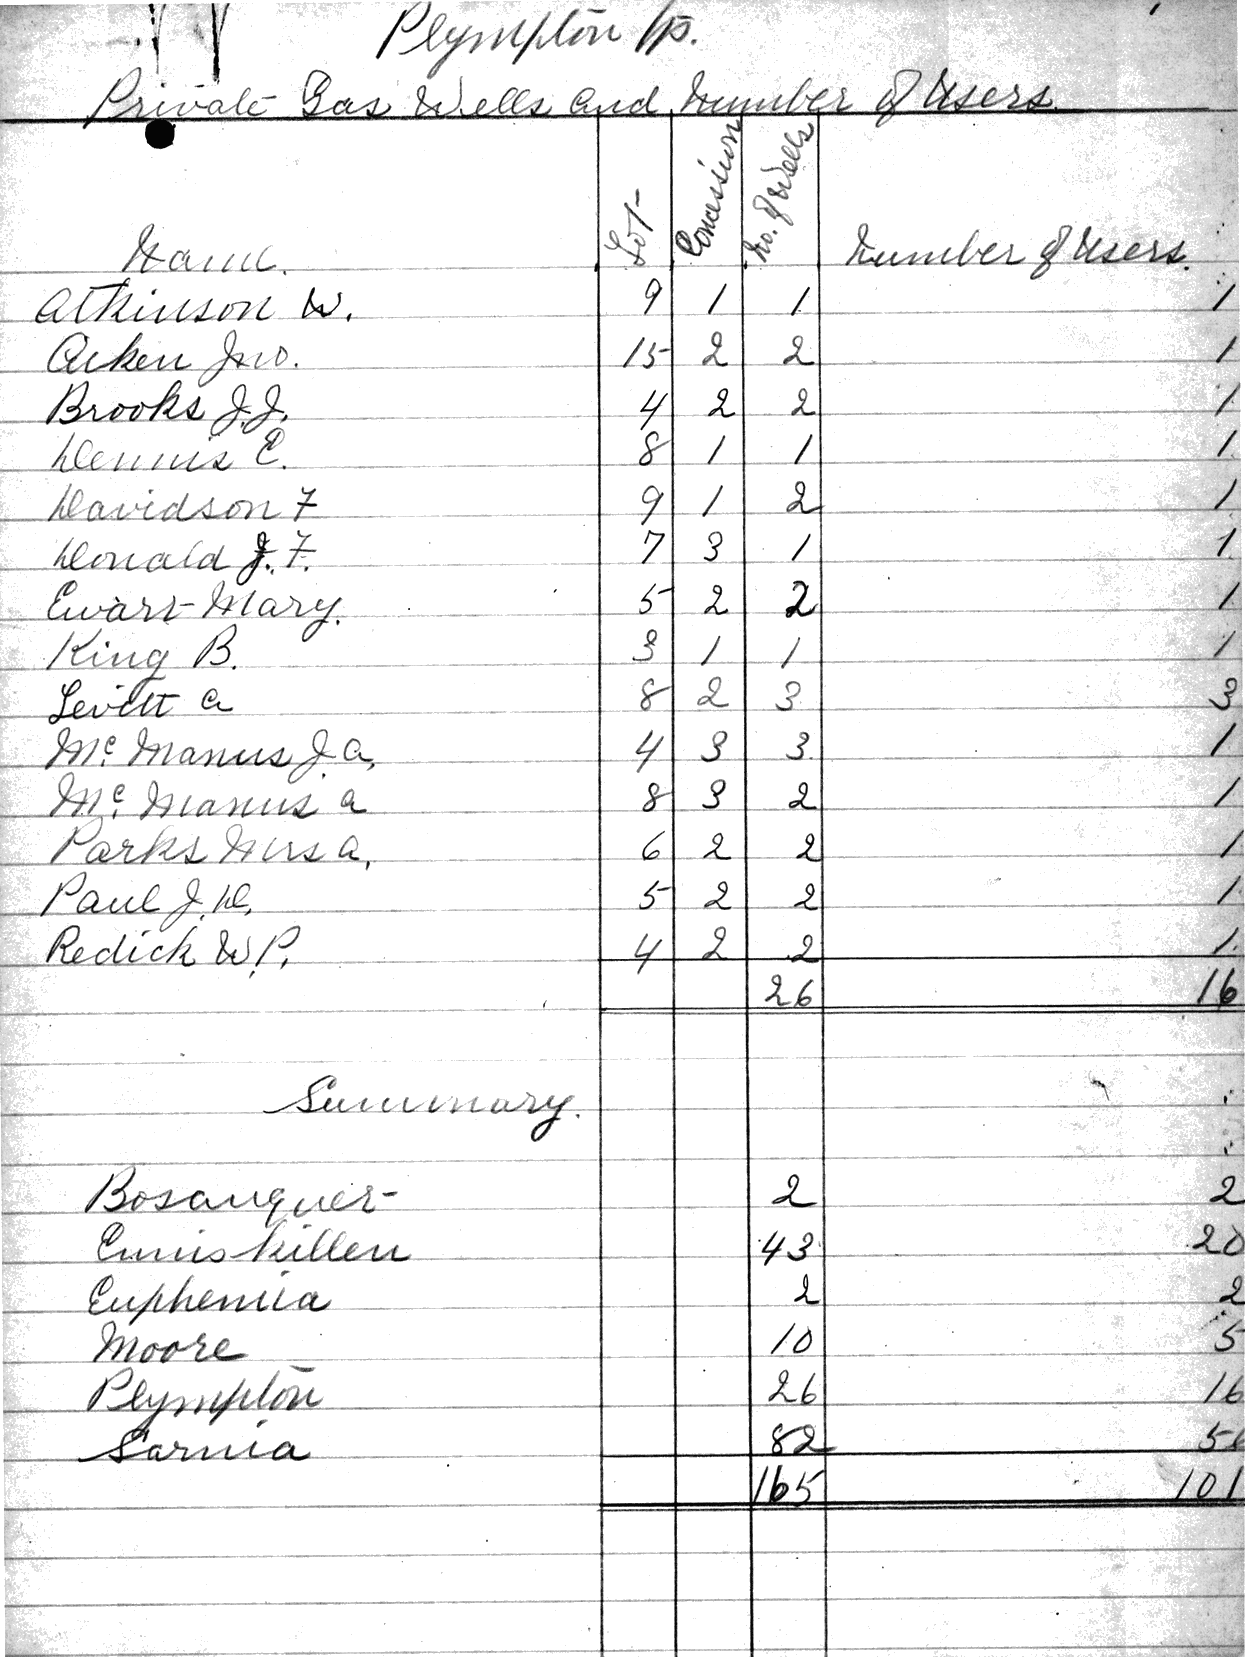 Plympton Tp.
Private Gas Wells and Number of Users.
Name. Lot Concession No. of Wells Number of Users.
Atkinson W. 9 1 1 1
Aiken Jno. 15 2 2 1
Brooks J.J. 4 2 2 1
Dennis E. 8 1 1 1
Davidson F 9 1 2 1
Donald J. F. 7 3 1 1
Ewart Mary. 5 2 2 1
King B. 3 1 1 1
Levitt A 8 2 3 3
Mc Manus J.A. 4 3 3 1
Mc Manus A 8 3 2 1
Parks Mrs A. 6 2 2 1
Paul J.D. 5 2 2 1
Redick W.P. 4 2 2 1
26 16
Summary.
Bosanquet 2 2
Enniskillen 43 20
Euphemia 2 2
Moore 10 5
Plympton 26 16
Sarnia 82
165 101